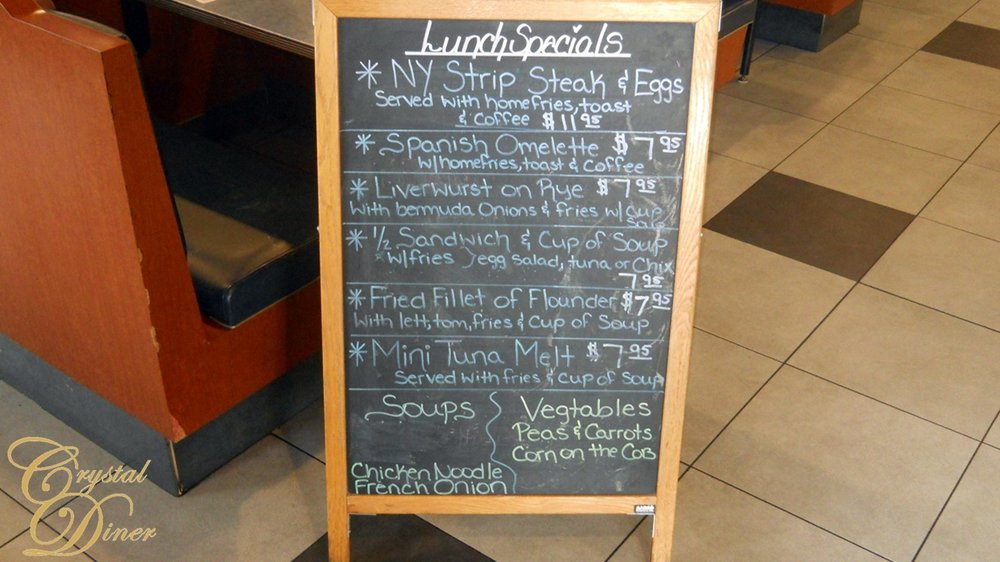 Lunch Specials
* NY Strip Steak & Eggs
Served with homefries, toast
& Coffee $11.95
* Spanish Omelette $7.95
w/homefries, toast & Coffee
* Liverwurst on Rye $7.95
with bermuda Onions & fries w/ Cup
* 1/2 Sandwich & Cup of Soup
w/fries egg salad, tuna or Chix
7.95
* Fried Fillet of Flounder $7.95
with lett, tom, fries & Cup of Soup
* Mini Tuna Melt $7.95
Served with fries & Cup of Soup
Soups
Chicken Noodle
French Onion
Vegtables
Peas & Carrots
Corn on the Cob
Crystal
Diner